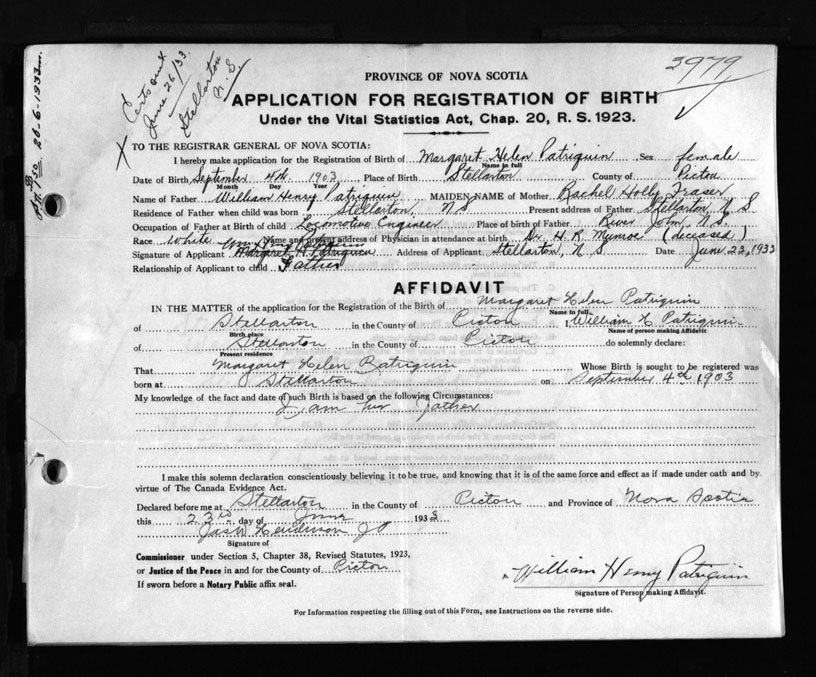 3979
Certs sent
June 26/33
Stellarton
N. S.
20-6-1933
PROVINCE OF NOVA SCOTIA
APPLICATION FOR REGISTRATION OF BIRTH
Under the Vital Statistics Act, Chap. 20, R. S. 1923.
X TO THE REGISTRAR GENERAL OF NOVA SCOTIA:
I hereby make application for the Registration of Birth of Margaret Helen Patriquin Sex female
Name in full
Date of Birth September 4th 1903 Place of Birth Stellarton County of Pictou
Month Day Year
Name of Father William Henry Patriquin MAIDEN NAME of Mother Rachel Holly Fraser
Residence of Father when child was born Stellarton, N S Present address of Father Stellarton N S
Occupation of Father at Birth of child Locomotive Engineer Place of birth of Father River John N. S.
Race White Name and present address of Physician in attendance at birth Dr. H. R. Munroe (deceased)
Signature of Applicant Margaret H Patriquin Address of Applicant Stellarton, N S Date June 23, 1933
Relationship of Applicant to child Father
AFFIDAVIT
IN THE MATTER of the application for the Registration of the Birth of Margaret Helen Patriquin
Name in full
of Stellarton in the County of Picton I, William H Patriquin
Birth place Name of person making Affidavit
of Stellarton in the County of Picton do solemnly declare:
Present residence
That Margaret Helen Patriquin Whose Birth is sought to be registered was
born at Stellarton on September 4th 1903
My knowledge of the fact and date of such Birth is based on the following Circumstances:
I am her Father
I make this solemn declaration conscientiously believing it to be true, and knowing that it is of the same force and effect as if made under oath and by
virtue of The Canada Evidence Act.
Declared before me at Stellarton in the County of Picton and Province of Nova Scotia
this 23rd day of June 1933
Jas W Henderson J P
Signature of
Commissioner under Section 5, Chapter 38, Revised Statutes, 1923,
or Justice of the Peace in and for the County of Picton
If sworn before a Notary Public affix seal.
William Henry Patriquin
Signature of Person making Affidavit.
For Information respecting the filling out of this Form, see Instructions on the reverse side.